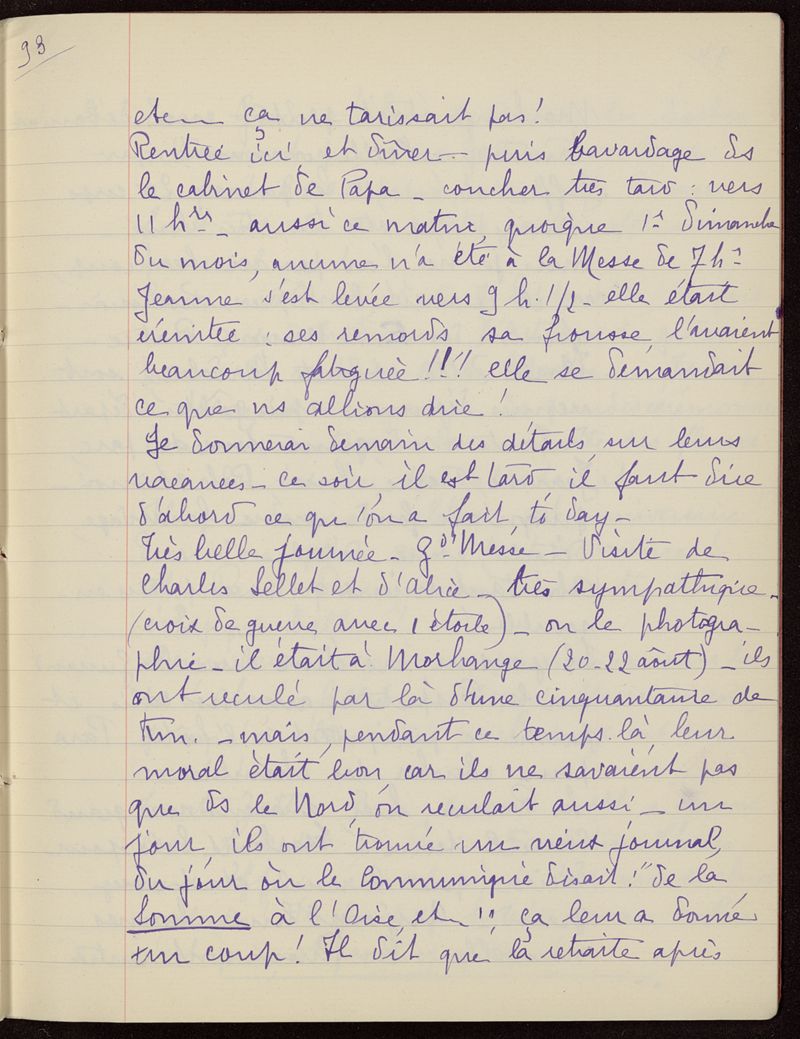 93
etc — ça ne tarissait pas!
Rentrée ici, et dîner — puis bavardage ds
le cabinet de Papa — coucher très tard : vers
11 hres — aussi ce matin, quoique 1er dimanche
du mois, aucune n'a été à la Messe de 7 h—
Jeanne s'est levée vers 9 h. 1/2 — elle était
éreintée : ses remords sa frousse, l'avaient
beaucoup fatiguée!!! elle se demandait
ce que ns allions dire!
Je donnerai demain des détails sur leurs
vacances — ce soir, il est tard il faut dire
d'abord ce qu'on a fait to day —
Très belle journée — Gd' Messe — Visite de
Charles Sellet et d'Alice — très sympathique —
(croix de guerre avec 1 étoile) — on le photogra-
phie — il était à Morhange (20-22 août) — ils
ont reculé par là d'une cinquantaine de
km. — mais, pendant ce temps-là, leur
moral était bon, car ils ne savaient pas
que ds le Nord, on reculait aussi — un
jour, ils ont trouvé un vieux journal,
du jour où le Communiqué disait: "de la
Somme à l'Oise, etc" ça leur a donné
un coup! Il dit que la retraite après